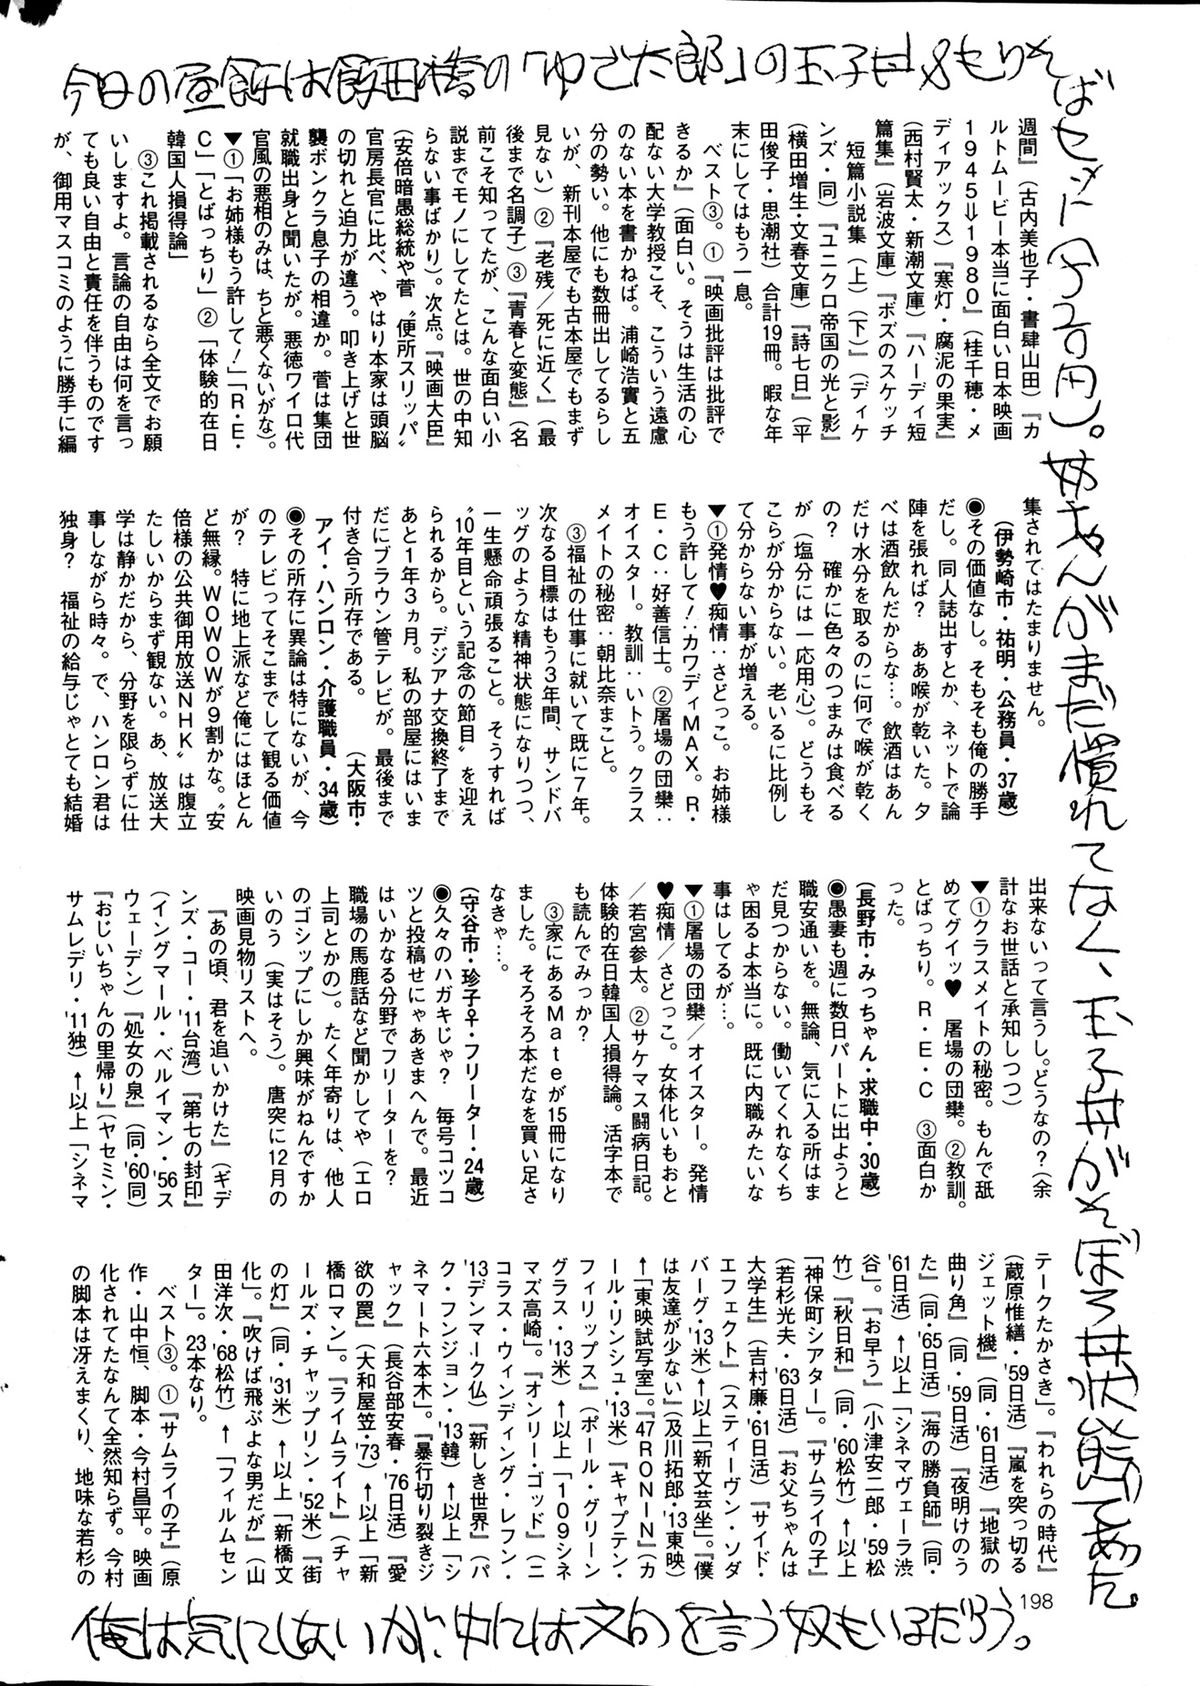 今日の昼飯は飯田橋の「ゆで太郎」の玉子丼&もりそ
ばセット(520円)。姉ちゃんがまだ慣れてなく、玉子丼がそぼろ丼状態であった。
週間』(古内美也子・書肆山田)『カ
ルトムービー本当に面白い日本映画
1945⇓1980』(桂千穂・メ
ディアックス)『寒灯・腐泥の果実』
(西村賢太・新潮文庫)『ハーディ短
篇集』(岩波文庫)『ボズのスケッチ
短篇小説集(上)(下)』(ディケ
ンズ・同)『ユニクロ帝国の光と影』
(横田増生・文春文庫)『詩七日』(平
田俊子・思潮社)合計19冊。暇な年
末にしてはもう一息。
ベスト③。①『映画批評は批評で
きるか』(面白い。そうは生活の心
配ない大学教授こそ、こういう遠慮
のない本を書かねば。浦崎浩實と五
分の勢い。他にも数冊出してるらし
いが、新刊本屋でも古本屋でもまず
見ない)②『老残/死に近く』(最
後まで名調子)③『青春と変態』(名
前こそ知ってたが、こんな面白い小
説までモノにしてたとは。世の中知
らない事ばかり)。次点。『映画大臣』
(安倍暗愚総統や菅〝便所スリッパ〟
官房長官に比べ、やはり本家は頭脳
の切れと迫力が違う。叩き上げと世
襲ボンクラ息子の相違か。菅は集団
就職出身と聞いたが。悪徳ワイロ代
官風の悪相のみは、ちと悪くないがな)。
▼①「お姉様もう許して!」「R・E・
C」「とばっちり」②「体験的在日
韓国人損得論」
③これ掲載されるなら全文でお願
いしますよ。言論の自由は何を言っ
ても良い自由と責任を伴うものです
が、御用マスコミのように勝手に編
集されてはたまりません。
(伊勢崎市・祐明・公務員・37歳)
◉その価値なし。そもそも俺の勝手
だし。同人誌出すとか、ネットで論
陣を張れば? ああ喉が乾いた。夕
べは酒飲んだからな…。飲酒はあん
だけ水分を取るのに何で喉が乾く
の? 確かに色々のつまみは食べる
が(塩分には一応用心)。どうもそ
こらが分からない。老いるに比例し
て分からない事が増える。
▼①発情♥痴情‥さどっこ。お姉様
もう許して!‥カワディMAX。R・
E・C‥好善信士。②屠場の団欒‥
オイスター。教訓‥いトう。クラス
メイトの秘密‥朝比奈まこと。
③福祉の仕事に就いて既に7年。
次なる目標はもう3年間、サンドバ
ッグのような精神状態になりつつ、
一生懸命頑張ること。そうすれば
〝10年目という記念の節目〟を迎え
られるから。デジアナ交換終了まで
あと1年3ヵ月。私の部屋にはいま
だにブラウン管テレビが。最後まで
付き合う所存である。 (大阪市・
アイ・ハンロン・介護職員・34歳)
◉その所存に異論は特にないが、今
のテレビってそこまでして観る価値
が? 特に地上派など俺にはほとん
ど無縁。WOWOWが9割かな。〝安
倍様の公共御用放送NHK〟は腹立
たしいからまず観ない。あ、放送大
学は静かだから、分野を限らずに仕
事しながら時々。で、ハンロン君は
独身? 福祉の給与じゃとても結婚
出来ないって言うし。どうなの?(余
計なお世話と承知しつつ)
▼①クラスメイトの秘密。もんで舐
めてグイッ♥ 屠場の団欒。②教訓。
とばっちり。R・E・C ③面白か
った。
(長野市・みっちゃん・求職中・30歳)
◉愚妻も週に数日パートに出ようと
職安通いを。無論、気に入る所はま
だ見つからない。働いてくれなくち
ゃ困るよ本当に。既に内職みたいな
事はしてるが…。
▼①屠場の団欒/オイスター。発情
♥痴情/さどっこ。女体化いもおと
/若宮参太。②サケマス闘病日記。
体験的在日韓国人損得論。活字本で
も読んでみっか?
③家にあるMateが15冊になり
ました。そろそろ本だなを買い足さ
なきゃ…。
(守谷市・珍子♀・フリーター・24歳)
◉久々のハガキじゃ? 毎号コツコ
ツと投稿せにゃあきまへんで。最近
はいかなる分野でフリーターを?
職場の馬鹿話など聞かしてや(エロ
上司とかの)。たく年寄りは、他人
のゴシップにしか興味がねんですか
いのう(実はそう)。唐突に12月の
映画見物リストへ。
『あの頃、君を追いかけた』(ギデ
ンズ・コー・'11台湾)『第七の封印』
(イングマール・ベルイマン・'56ス
ウェーデン)『処女の泉』(同・'60同)
『おじいちゃんの里帰り』(ヤセミン・
サムレデリ・'11独)↑以上「シネマ
テークたかさき」。『われらの時代』
(蔵原惟繕・'59日活)『嵐を突っ切る
ジェット機』(同・'61日活)『地獄の
曲り角』(同・'59日活)『夜明けのう
た』(同・'65日活)『海の勝負師』(同・
'61日活)↑以上「シネマヴェーラ渋
谷」。『お早う』(小津安二郎・'59松
竹)『秋日和』(同・'60松竹)↑以上
「神保町シアター」。『サムライの子』
(若杉光夫・'63日活)『お父ちゃんは
大学生』(吉村廉・'61日活)『サイド・
エフェクト』(スティーヴン・ソダ
バーグ・'13米)↑以上「新文芸坐」。『僕
は友達が少ない』(及川拓郎・'13東映)
↑「東映試写室」。『47RONIN』(カ
ール・リンシュ・'13米)『キャプテン・
フィリップス』(ポール・グリーン
グラス・'13米)↑以上「109シネ
マズ高崎」。『オンリー・ゴッド』(ニ
コラス・ウィンディング・レフン・
'13デンマーク仏)『新しき世界』(パ
ク・フンジョン・'13韓)↑以上「シ
ネマート六本木」。『暴行切り裂きジ
ャック』(長谷部安春・'76日活)『愛
欲の罠』(大和屋竺・'73)↑以上「新
橋ロマン」。『ライムライト』(チャ
ールズ・チャップリン・'52米)『街
の灯』(同・'31米)↑以上「新橋文
化」。『吹けば飛ぶよな男だが』(山
田洋次・'68松竹)↑「フィルムセン
ター」。23本なり。
ベスト③。①『サムライの子』(原
作・山中恒、脚本・今村昌平。映画
化されてたなんて全然知らず。今村
の脚本は冴えまくり、地味な若杉の
198
俺は気にしないが、中には文句を言う奴もいるだろう。